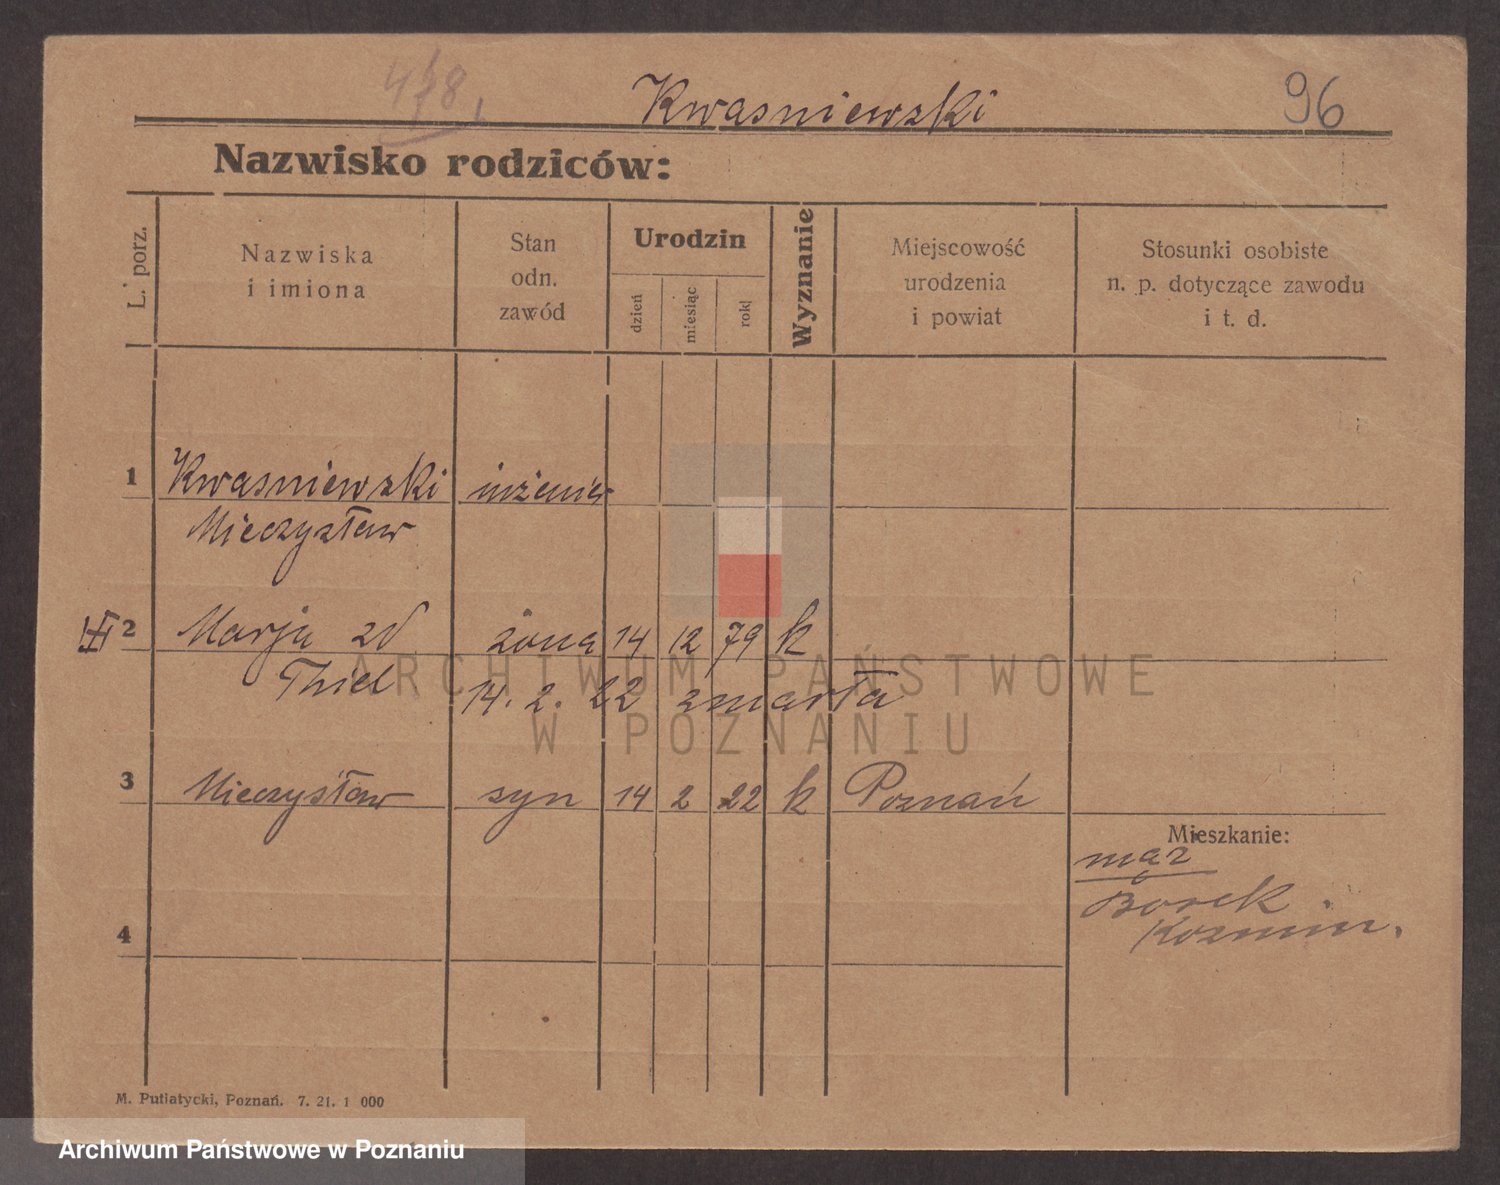 478
Kwasniewski
96
Nazwisko rodziców:
L. porz.
Nazwiska
i imiona
Stan
odn.
zawód
Urodzin
dzień
miesiąc
rok
Wyznanie
Miejscowość
urodzenia
i powiat
Stosunki osobiste
n. p. dotyczące zawodu
i t. d.
1 Kwasniewski inżenier
Mieczysław
2 Marja zd żona 14 12 79 k
Thiel 14. 2. 22 zmarła
ARCHIWUM PAŃSTWOWE
W POZNANIU
3 Mieczysław syn 14 2 22 k Poznań
Mieszkanie:
mąż
Borek
Kozmin.
4
M. Putiatycki, Poznań. 7. 21. 1 000
Archiwum Państwowe w Poznaniu